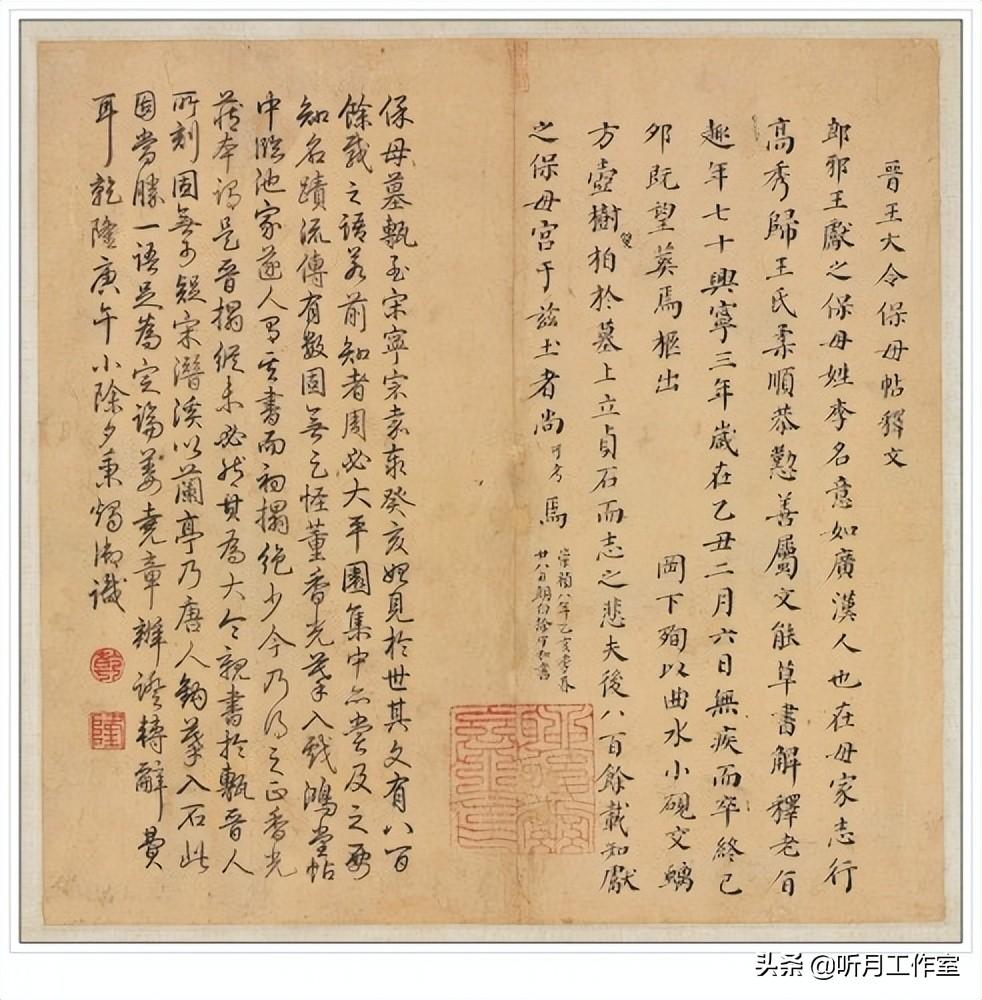 晉王大令保母帖釋文
郎邪王獻之保母姓李名意如廣漢人也在母家志行
高秀歸王氏柔順恭懃善屬文能草書解釋老旨
趣年七十興寧三年歲在乙丑二月六日無疾而卒終已
夘既望葬焉柩出 岡下殉以曲水小硯交螭
方壺樹柏於墓上立貞石而志之悲夫後八百餘載知獻
之保母宮于茲土者尚可考焉
崇禎八年乙亥老春
廿八日朝白徐守和書
保母墓甎至宋寧宗嘉泰癸亥始見於世其文有八百
餘載之語若前知者周必大平園集中亦嘗及之要
知名蹟流傳有數固無足怪董香光摹入戲鴻堂帖
中臨池家遂人習其書而初搨絶少今乃得之正香光
藏本謂是晉搨縱未必然其為大令親書於甎晉人
所刻固無可疑宋潛溪以蘭亭乃唐人鈎摹入石此
固當勝一語足為定論姜堯章辨證轉辭費
耳乾隆庚午小除夕秉燭御識
乾
隆
头条 @听月工作室